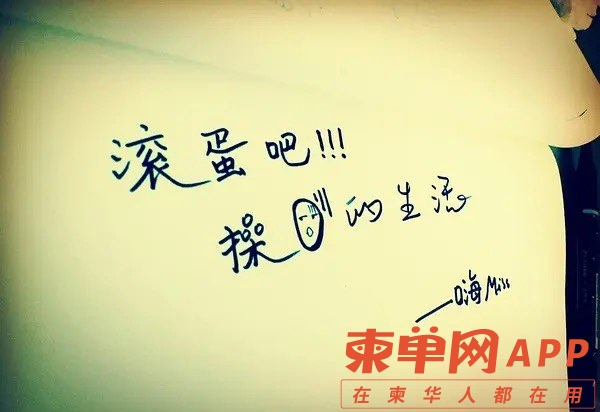 滚蛋吧!!!
操的生活
——嗨Miss
柬单网APP
在柬华人都在用